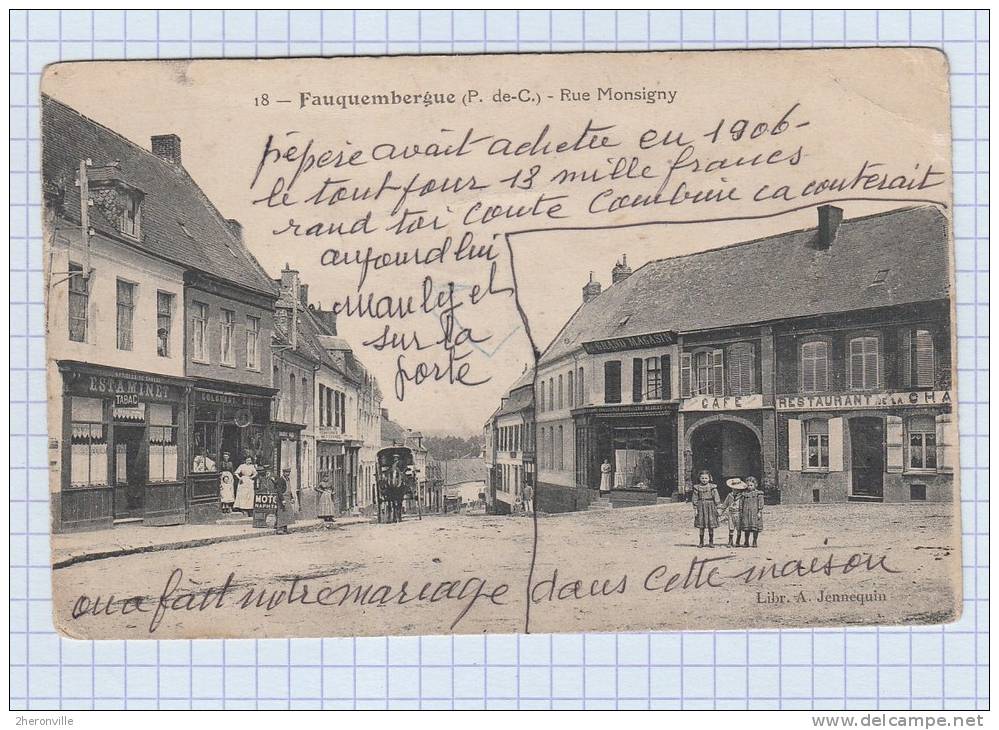 18 — Fauquembergue (P. de-C.) - Rue Monsigny
pépère avait achetée en 1906 -
le tout pour 13 mille francs
rand toi conte Combien ca couterait
aujourd hui
et
sur la
porte
ESTAMINET
TABAC
GRAND MAGASIN
CAFÉ
RESTAURANT DE LA CHA
ona fàit notre mariage dans cette maison
Libr. A. Jennequin
2heronville
http://www.delcampe.net